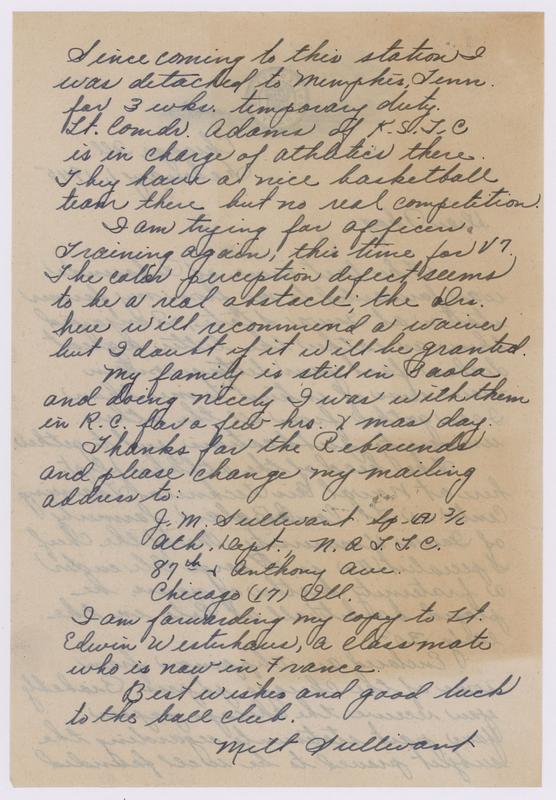 Since coming to this station I
was detached to Memphis, Tenn.
for 3 wks. temporary duty.
Lt. Comdr. Adams of K.S.T.C
is in charge of athletics there.
They have a nice basketball
team there but no real competition.
I am trying for officers
Training again, this time for V7.
The color perception defect seems
to be a real obstacle; the Drs.
here will recommend a waiver
but I doubt if it will be granted.
My family is still in Paola
and doing nicely I was with them
in K.C. for a few hrs. Xmas day.
Thanks for the Rebounds
and please change my mailing
address to:
J. M. Sullivant Sp. (A) 3/c
Ath. Dept., N.A.T.T.C.
87th & Anthony Ave.
Chicago (17) Ill.
I am forwarding my copy to Lt.
Edwin Westerhaus, a classmate
who is now in France.
Best wishes and good luck
to the ball club.
Milt Sullivant